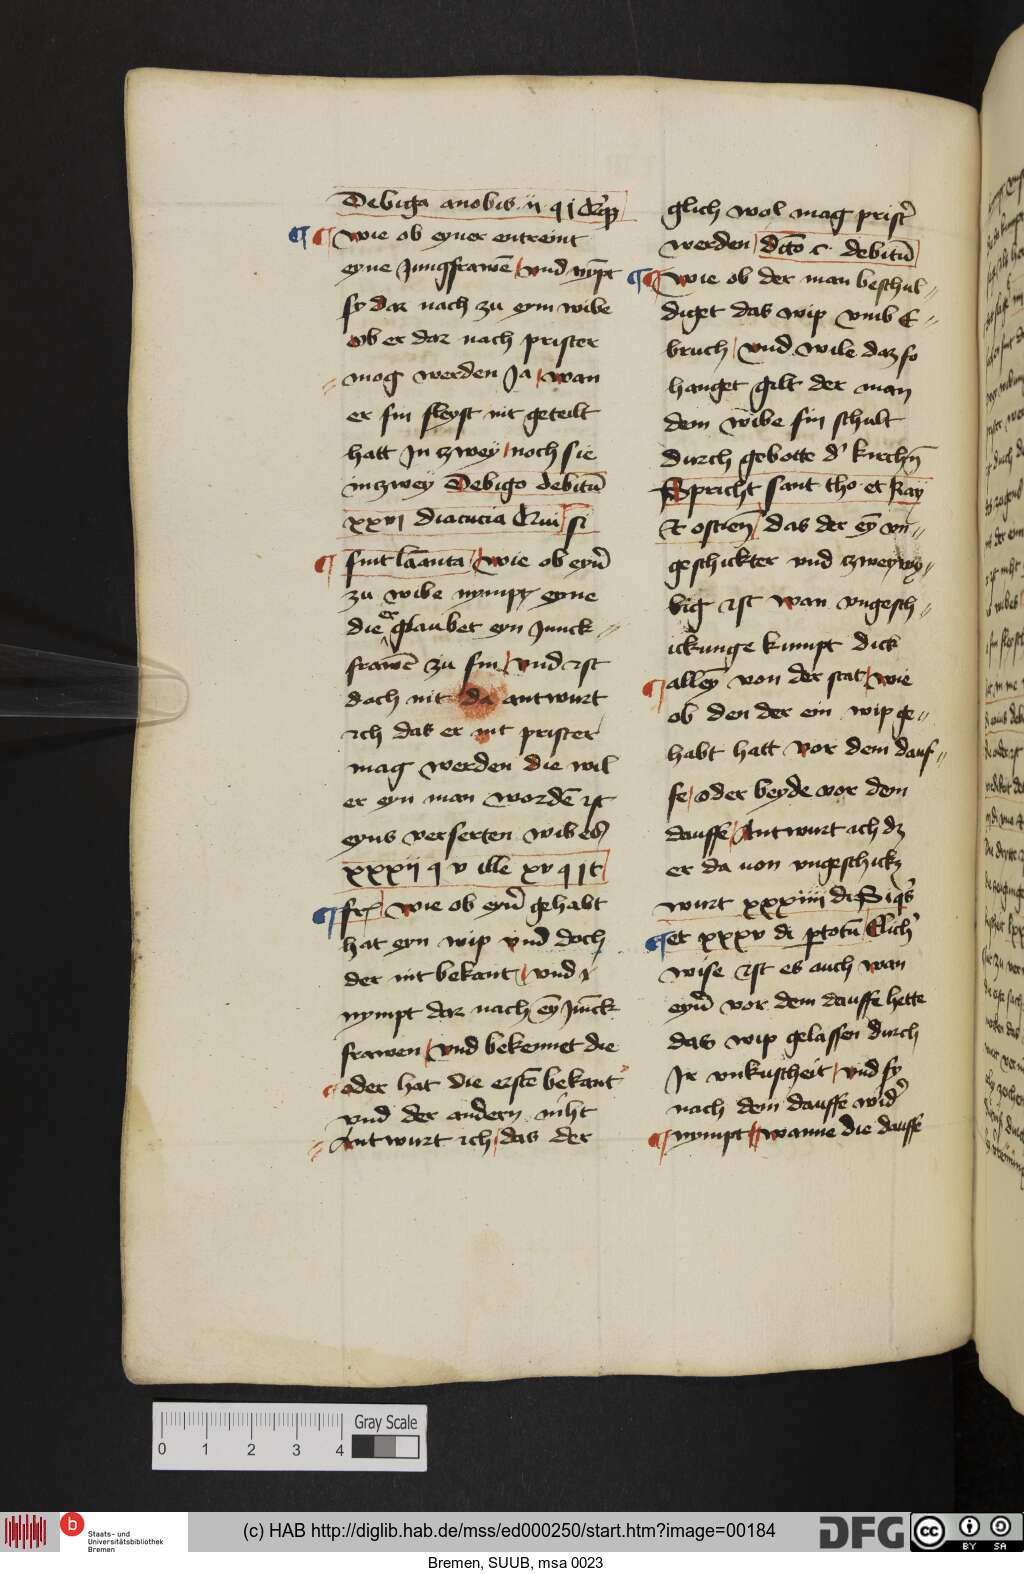 Debiga anobis ij q j
wie ob eyner entreint
eyne Jungfrawē vnd nÿpt
sy dar nach zu eym wibe
ob er dar nach prister
mog werden Ja wan
er sin fleyst nit geteilt
hatt Jn zwey noch sie
inzwey Debigo debitū
xxvj diacucia si
sint wie ob eyn̄
zu wibe nympt eyne
die er glaubet eyn Junck
frawē zu sin vnd ist
doch nit da antwurt
ich das er nit prister
mag werden die wil
er eyn man wordē ist
eyns verserten wibes
xxxij q v ille xv q j
wie ob eyn̄ gehabt
hat eyn wip vnd doch
der nit bekant vnd
nympt dar nach eȳ Jūnck
frawen vnd bekennet die
oder hat die erstē bekant
vnd der andern niht
Antwurt ich das der
glich wol mag prist̄
werden debitū
wie ob der man beschul
diget das wip vmb E
bruch vnd wile daz so
hanget gilt der man
dem wibe sin schult
durch gebotte d' kirchn̄
Spricht sant tho et Ray
Et ostien̄ das der eȳ vn
geschickter vnd zweywy
big ist wan vngesch
ickunge kumpt dick
alleȳ von der stat wie
ob den der ein wip ge
habt hatt vor dem dauf
fe oder beyde vor dem
dauffe Antwurt ich dz
er da uon vngeschick
wurt xxxiiij di Siq̄s
et xxxv di Elich'
wise ist es auch wan
eyn̄ vor dem dauffe hette
das wip gelassen durch
Jr vnkuscheit vnd sy
nach dem dauffe wid'
nympt wanne die dauff
0 1 2 3 4
Gray Scale
b Staats- und
Universitätsbibliothek
Bremen
(c) HAB http://diglib.hab.de/mss/ed000250/start.htm?image=00184
DFG
cc BY SA
Bremen, SUUB, msa 0023